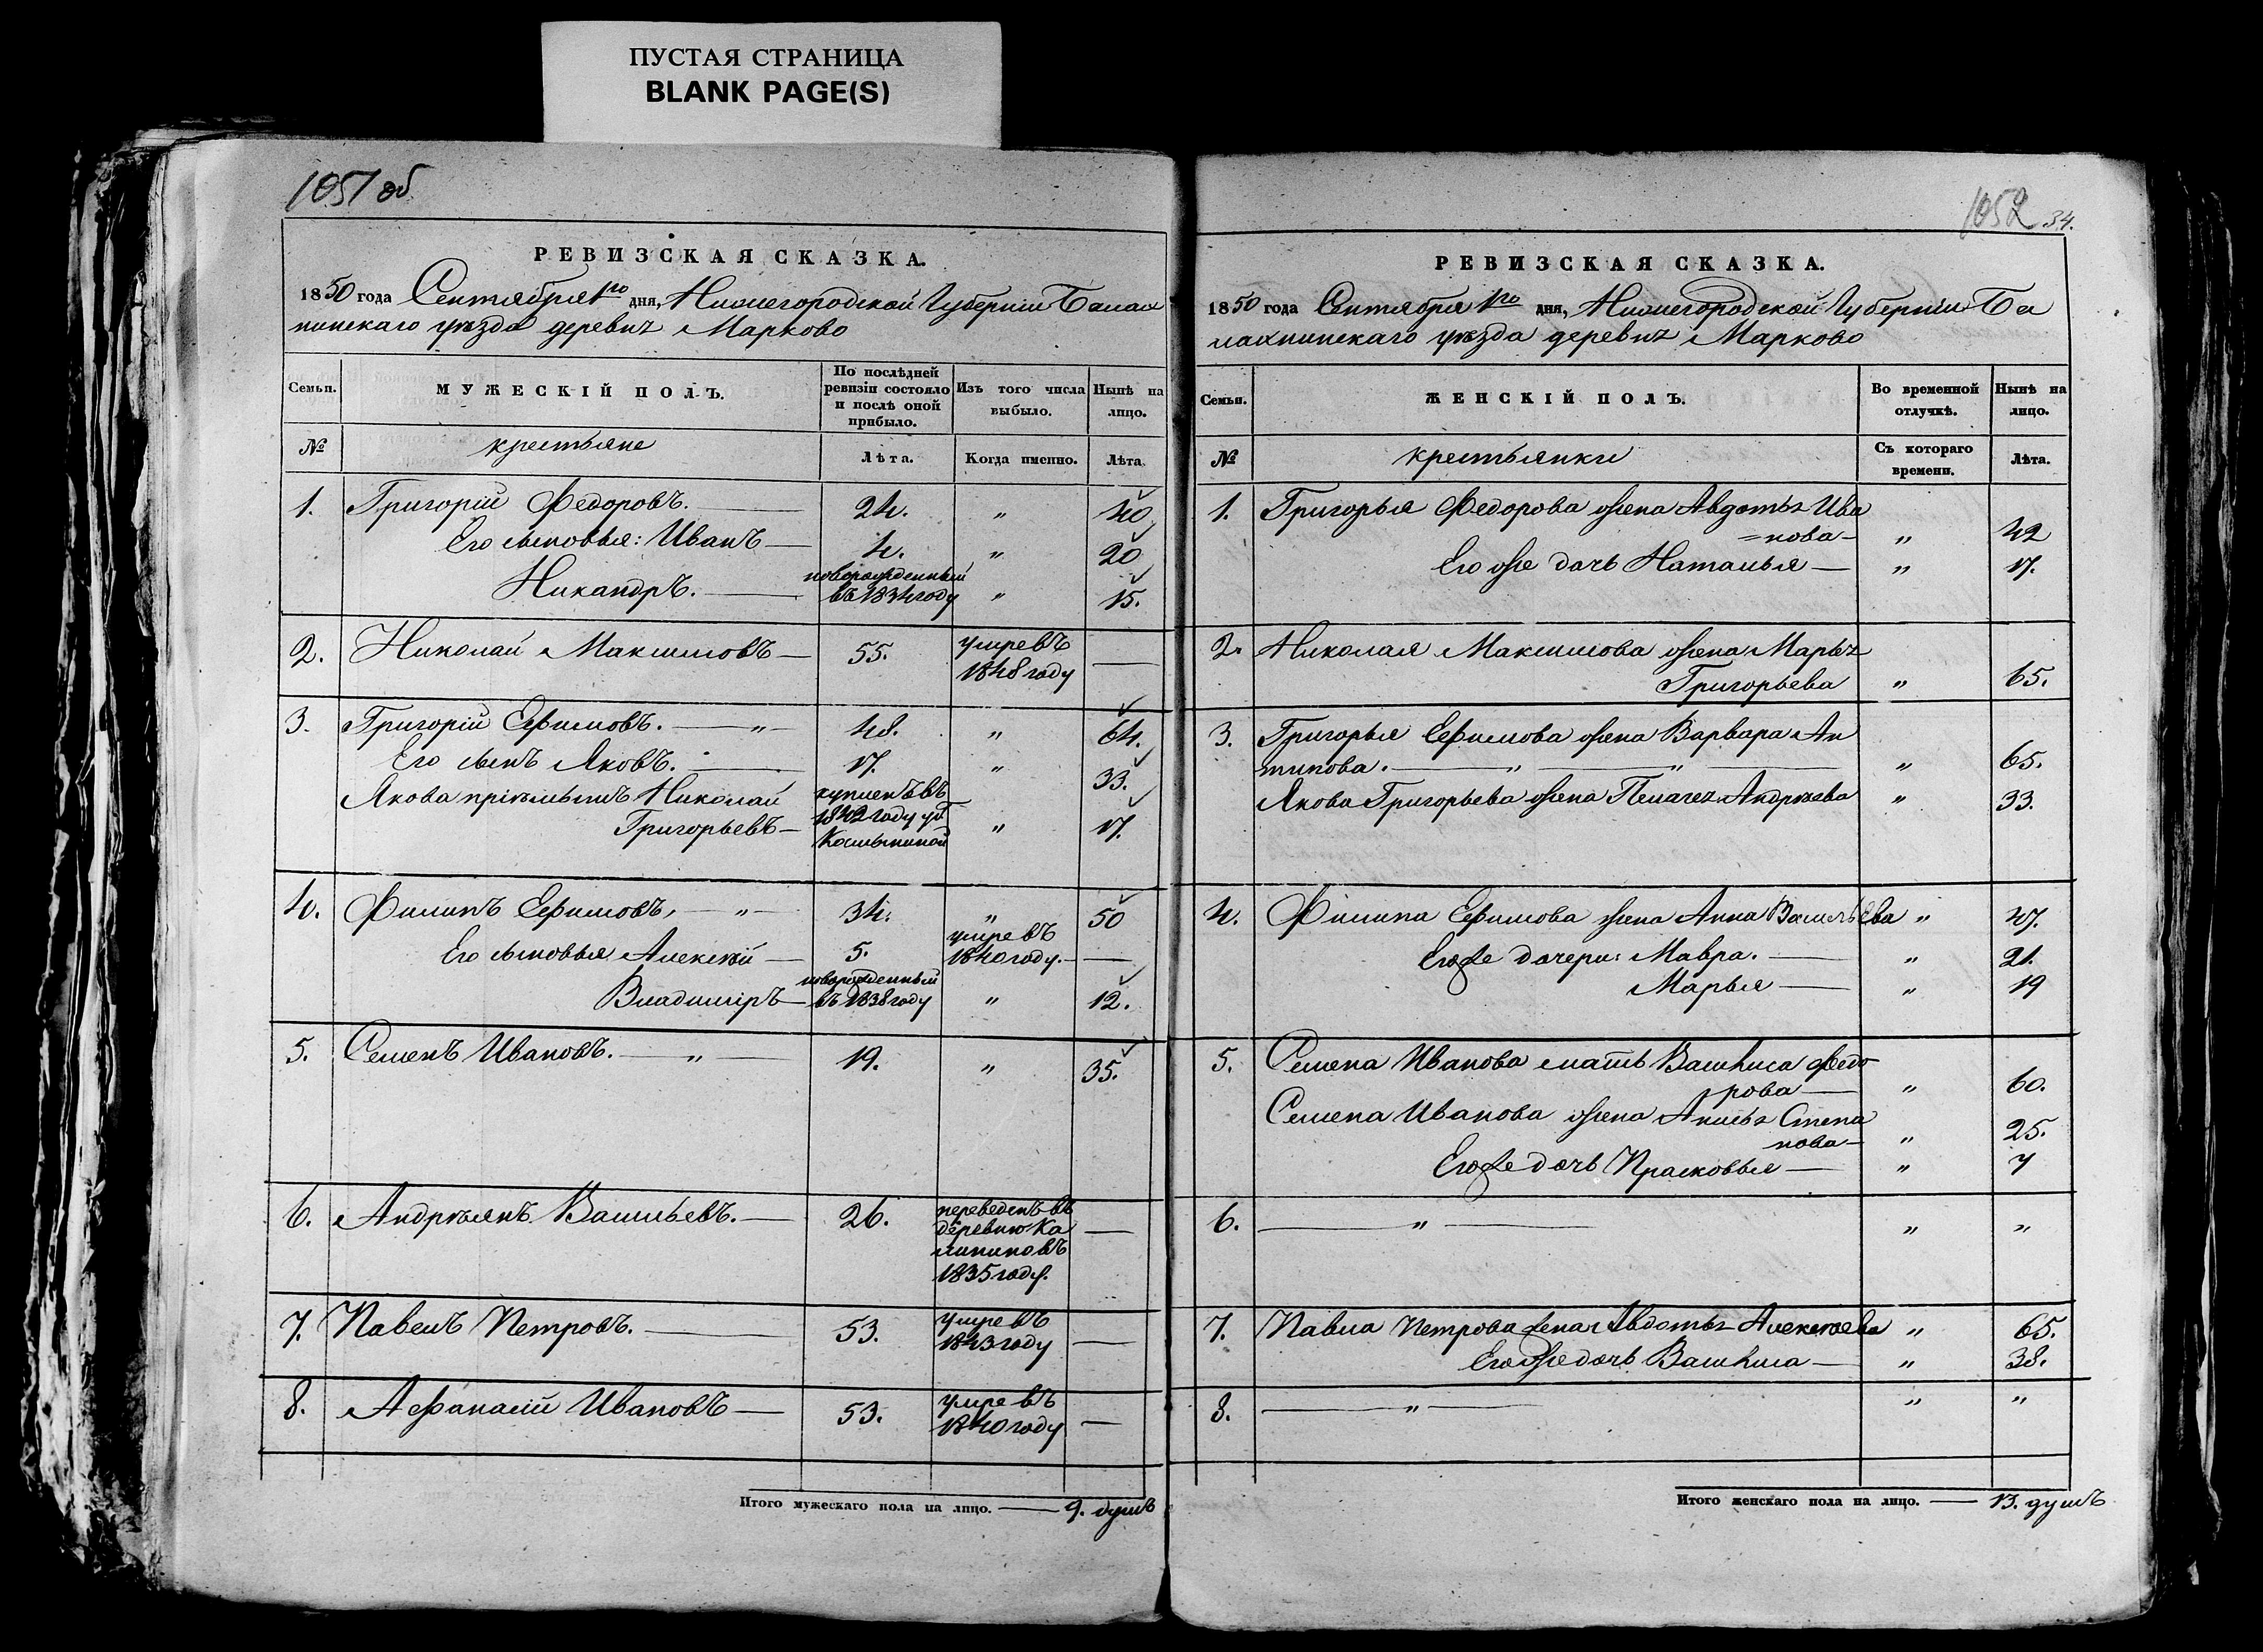 ПУСТАЯ СТРАНИЦА
BLANK PAGE(S)
1051 об
РЕВИЗСКАЯ СКАЗКА.
1850 года Сентября 1го дня, Нижегородской Губернiи Балах
нинскаго уѣзда деревнѣ Марково
Семьи.
МУЖЕСКІЙ ПОЛЪ.
По послѣдней ревизіи состояло и послѣ оной прибыло.
Изъ того числа выбыло.
Нынѣ на лицо.
№ крестьяне Лѣта. Когда именно. Лѣта.
1. Григорій Федоровъ. 24. " 40
Его сыновья: Иванъ 4. " 20
Никандръ. новорожденный въ 1834 году " 15.
2. Николай Максимовъ 55. умре въ 1848 году
3. Григорій Ефимовъ. " 48. " 64.
Его сынъ Яковъ. 17. " 33.
Якова пріемышъ Николай
Григорьевъ купленъ въ 1842 году у Г. " 17.
4. Филипъ Ефимовъ, " 34. " 50
Его сыновья Алексѣй 5. умре въ 1840 году.
Владимiръ новорожденный въ 1838 году " 12.
5. Семенъ Ивановъ. " 19. " 35.
6. Андреянъ Васильевъ. 26. переведенъ въ деревню Ка
линино въ
1835 году.
7. Павелъ Петровъ. 53. умре въ 1843 году
8. Афанасій Ивановъ 53. умре въ 1840 году
Итого мужескаго пола на лицо. 9. душъ
1052 34.
РЕВИЗСКАЯ СКАЗКА.
1850 года Сентября 1го дня, Нижегородской Губернiи Ба
лахнинскаго уѣзда деревнѣ Марково
Семьи.
ЖЕНСКІЙ ПОЛЪ.
Во временной отлучкѣ.
Нынѣ на лицо.
№ крестьянки Съ котораго времени. Лѣта.
1. Григорья Федорова жена Авдотья Ива
=нова " 42
Его же дочь Наталья " 17.
2. Николая Максимова жена Марья
Григорьева " 65.
3. Григорья Ефимова жена Варвара Ан
типова. " " " 65.
Якова Григорьева жена Пелагея Андрѣева " 33.
4. Филипа Ефимова жена Анна Васильева " 47.
Его же дочери: Мавра. " 21.
Марья " 19
5. Семена Иванова мать Васи́лиса Федо
рова " 60.
Семена Иванова жена Анисья Степа
нова " 25.
Его же дочь Прасковья " 7
6. " " "
7. Павла Петрова жена Авдотья Алексѣева " 65.
Его же дочь Василиса " 38.
8. " " "
Итого женскаго пола на лицо. 13. душъ